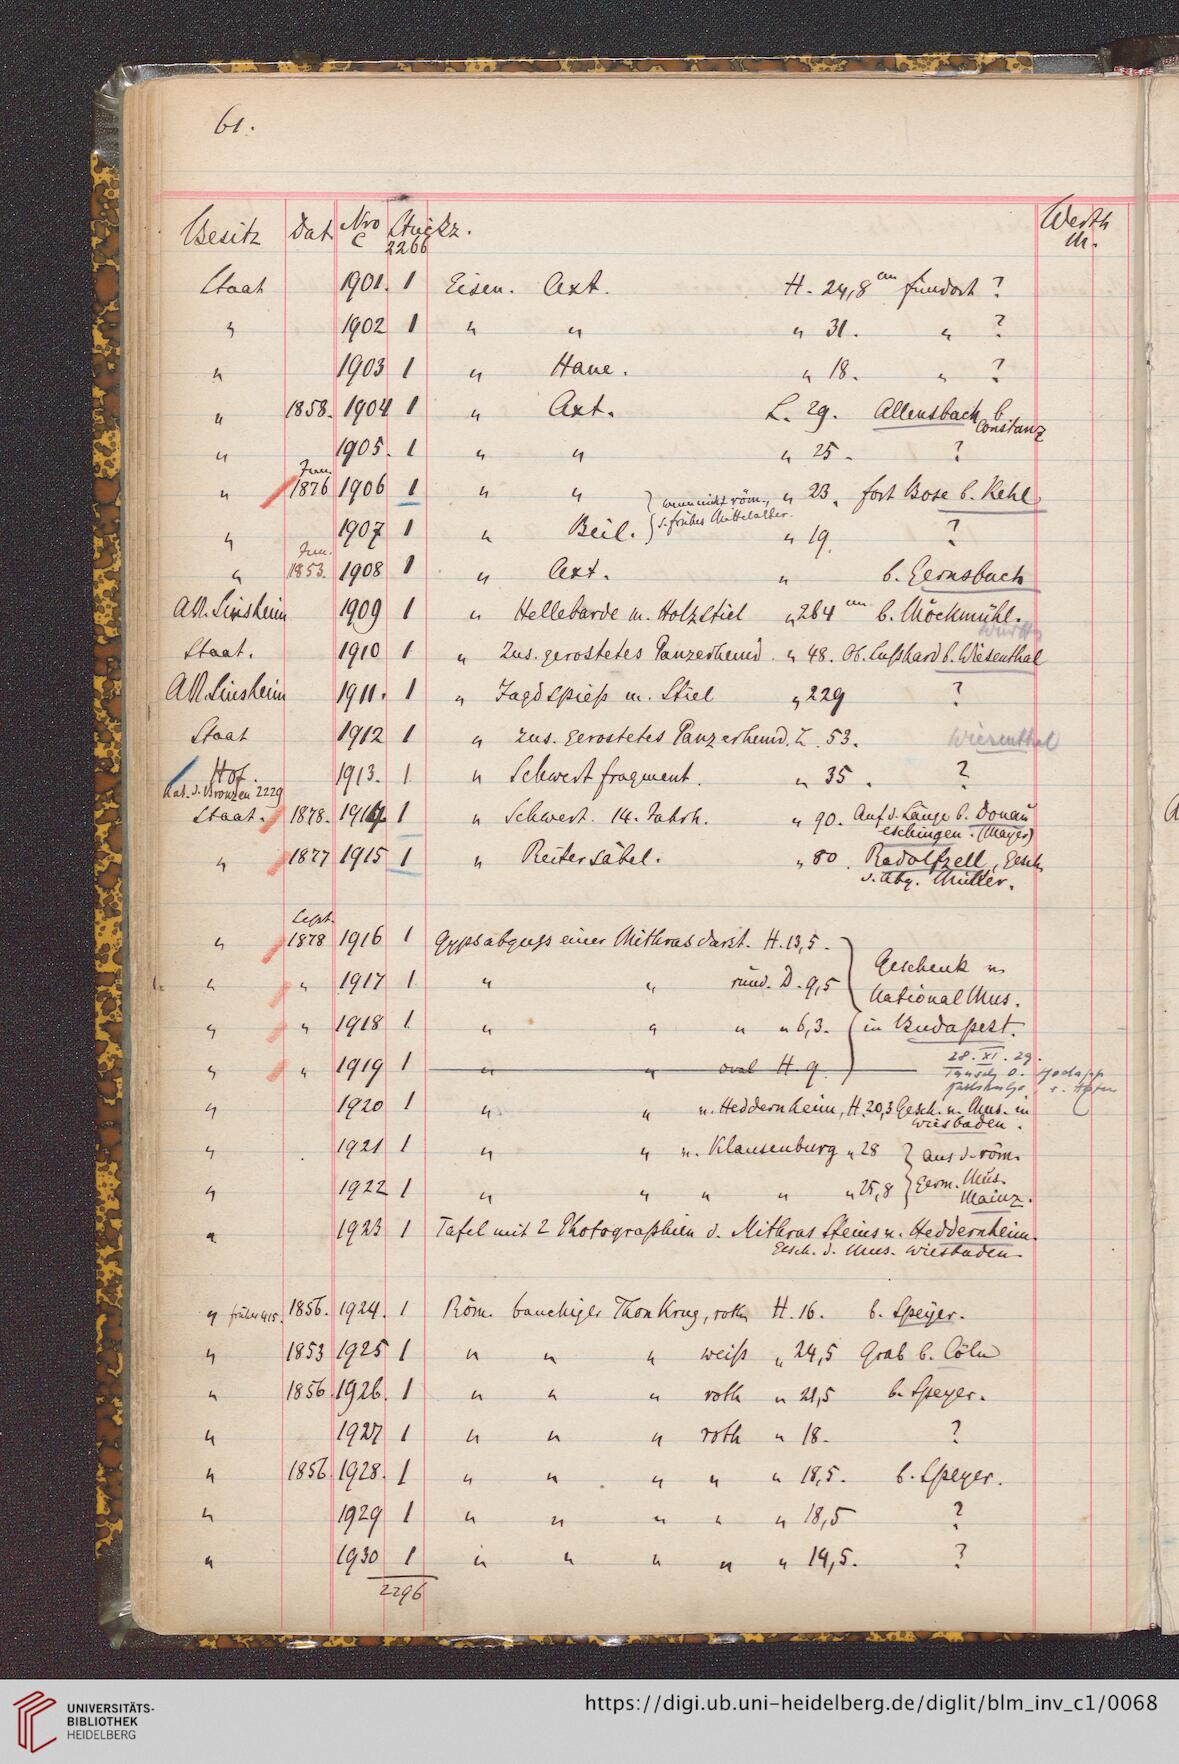 61.
Besitz Dat Nro C Stückz. 2266 Werth M.
Staat 1901. 1 Eisen. Axt. H. 24,8 cm Fundort ?
" 1902 1 " " " 31. " ?
" 1903 1 " Haue. " 18. " ?
" 1858. 1904 1 " Axt. L. 29. Allensbach b. Constanz
" 1905. 1 " " " 25. ?
" Jun. 1876 1906 1 " " } wenn nicht röm., " 23. Fort Bose b. Kehl
" 1907 1 " Beil. } s. frühes Mittelalter. " 19. ?
" Jun. 1853. 1908 1 " Axt. " b. Gernsbach
AV. Sinsheim 1909 1 " Hellebarde m. Holzstiel " 264 cm b. Möckmühl.
Württ.
Staat. 1910 1 " Zus. gerostetes Panzerhemd. " 48. Ob. Lußhard b. Wiesenthal
AV Sinsheim 1911. 1 " Jagdspieß m. Stiel " 229 ?
Staat 1912 1 " zus. gerostetes Panzerhemd. L. 53. Wiesenthal
Hof. 1913. 1 " Schwertfragment. " 35. ?
Kat. d. Bronzen 2229
Staat. 1878. 1914 1 " Schwert. 14. Jahrh. " 90. Auf d. Länge b. Donau
eschingen. (Mayer)
" 1877 1915 1 " Reitersäbel. " 80. Radolfzell, Gesch.
v. Abg. Müller.
" Sept. 1878 1916 1 Gypsabguss einer Mithrasdarst. H. 13,5.
" " 1917 1 " " rund. D. 9,5 } Geschenk v. National Mus.
" " 1918 1 " " " " 6,3. } in Budapest.
" " 1919 1 " " oval H. 9
28. XI. 29.
Tausch
" 1920 1 " " v. Heddernheim, H. 20,3 Gesch. v. Mus. in
Wiesbaden.
" 1921 1 " " v. Klausenburg " 28 } aus d. röm.
" 1922 1 " " " " " 25,8 } germ. Mus.
Mainz.
" 1923 1 Tafel mit 2 Photographien d. Mithras Steins v. Heddernheim.
Gesch. d. Mus. Wiesbaden.
" früher 415. 1856. 1924. 1 Röm. bauchiger Thon Krug, roth H. 16. b. Speyer.
" 1853 1925 1 " " " weiß " 24,5 Grab b. Cöln
" 1856 1926. 1 " " " roth " 21,5 b. Speyer.
" 1927 1 " " " roth " 18. ?
" 1856 1928. 1 " " " " " 18,5. b. Speyer.
" 1929 1 " " " " " 18,5 ?
" 1930 1 " " " " " 14,5. ?
2296
UNIVERSITÄTS-
BIBLIOTHEK
HEIDELBERG
https://digi.ub.uni-heidelberg.de/diglit/blm_inv_c1/0068